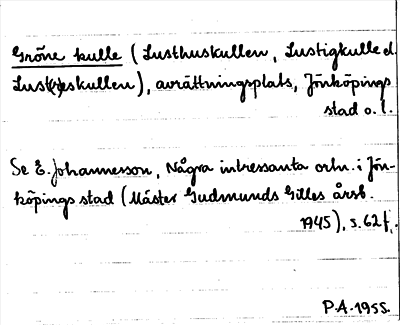 Gröne kulle (Lusthuskullen, Lustigkulle d.
Lust(r)eskullen), avrättningsplats, Jönköpings
stad o. l.
Se E. Johannesson, Några intressanta ortn. i Jön-
köpings stad (Mäster Gudmunds Gilles årsb.
1945), s. 62 f.
P.A. 1955.